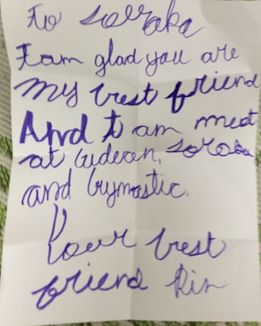 to soraka
I am glad you are
my best friend
And I am meet
at
and Gymnastic.
your best
friend Rin